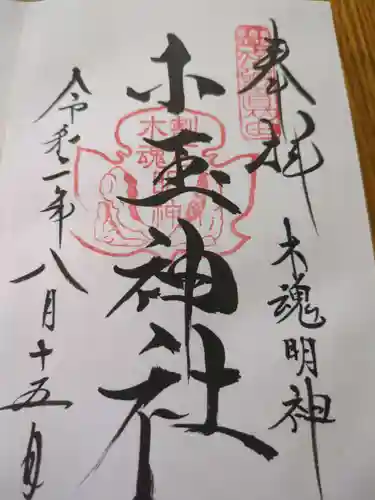 奉拝
木魂明神
木玉神社
令和一年八月十五日
木魂
明神